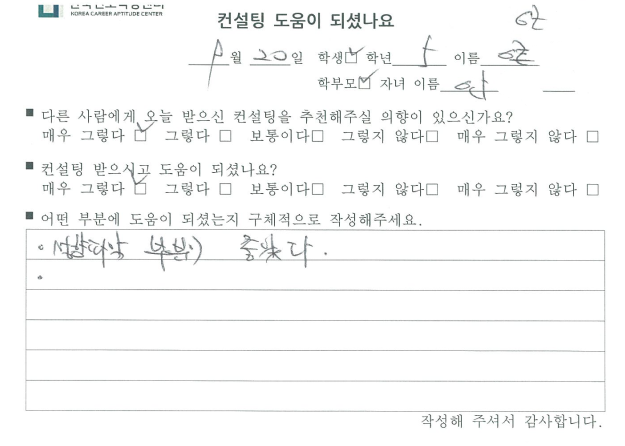 KOREA CAREER APTITUDE CENTER
컨설팅 도움이 되셨나요
월 20일 학생☑ 학년 5 이름
학부모☑ 자녀 이름
■ 다른 사람에게 오늘 받으신 컨설팅을 추천해주실 의향이 있으신가요?
매우 그렇다 ☑ 그렇다 □ 보통이다□ 그렇지 않다□ 매우 그렇지 않다 □
■ 컨설팅 받으시고 도움이 되셨나요?
매우 그렇다 ☑ 그렇다 □ 보통이다□ 그렇지 않다□ 매우 그렇지 않다 □
■ 어떤 부분에 도움이 되셨는지 구체적으로 작성해주세요.
부분이 좋았다.
작성해 주셔서 감사합니다.